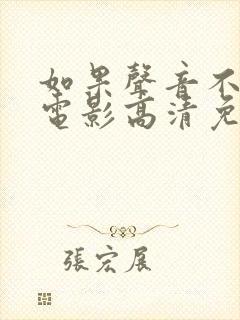 如果聲音不
電影高清免
張宏展